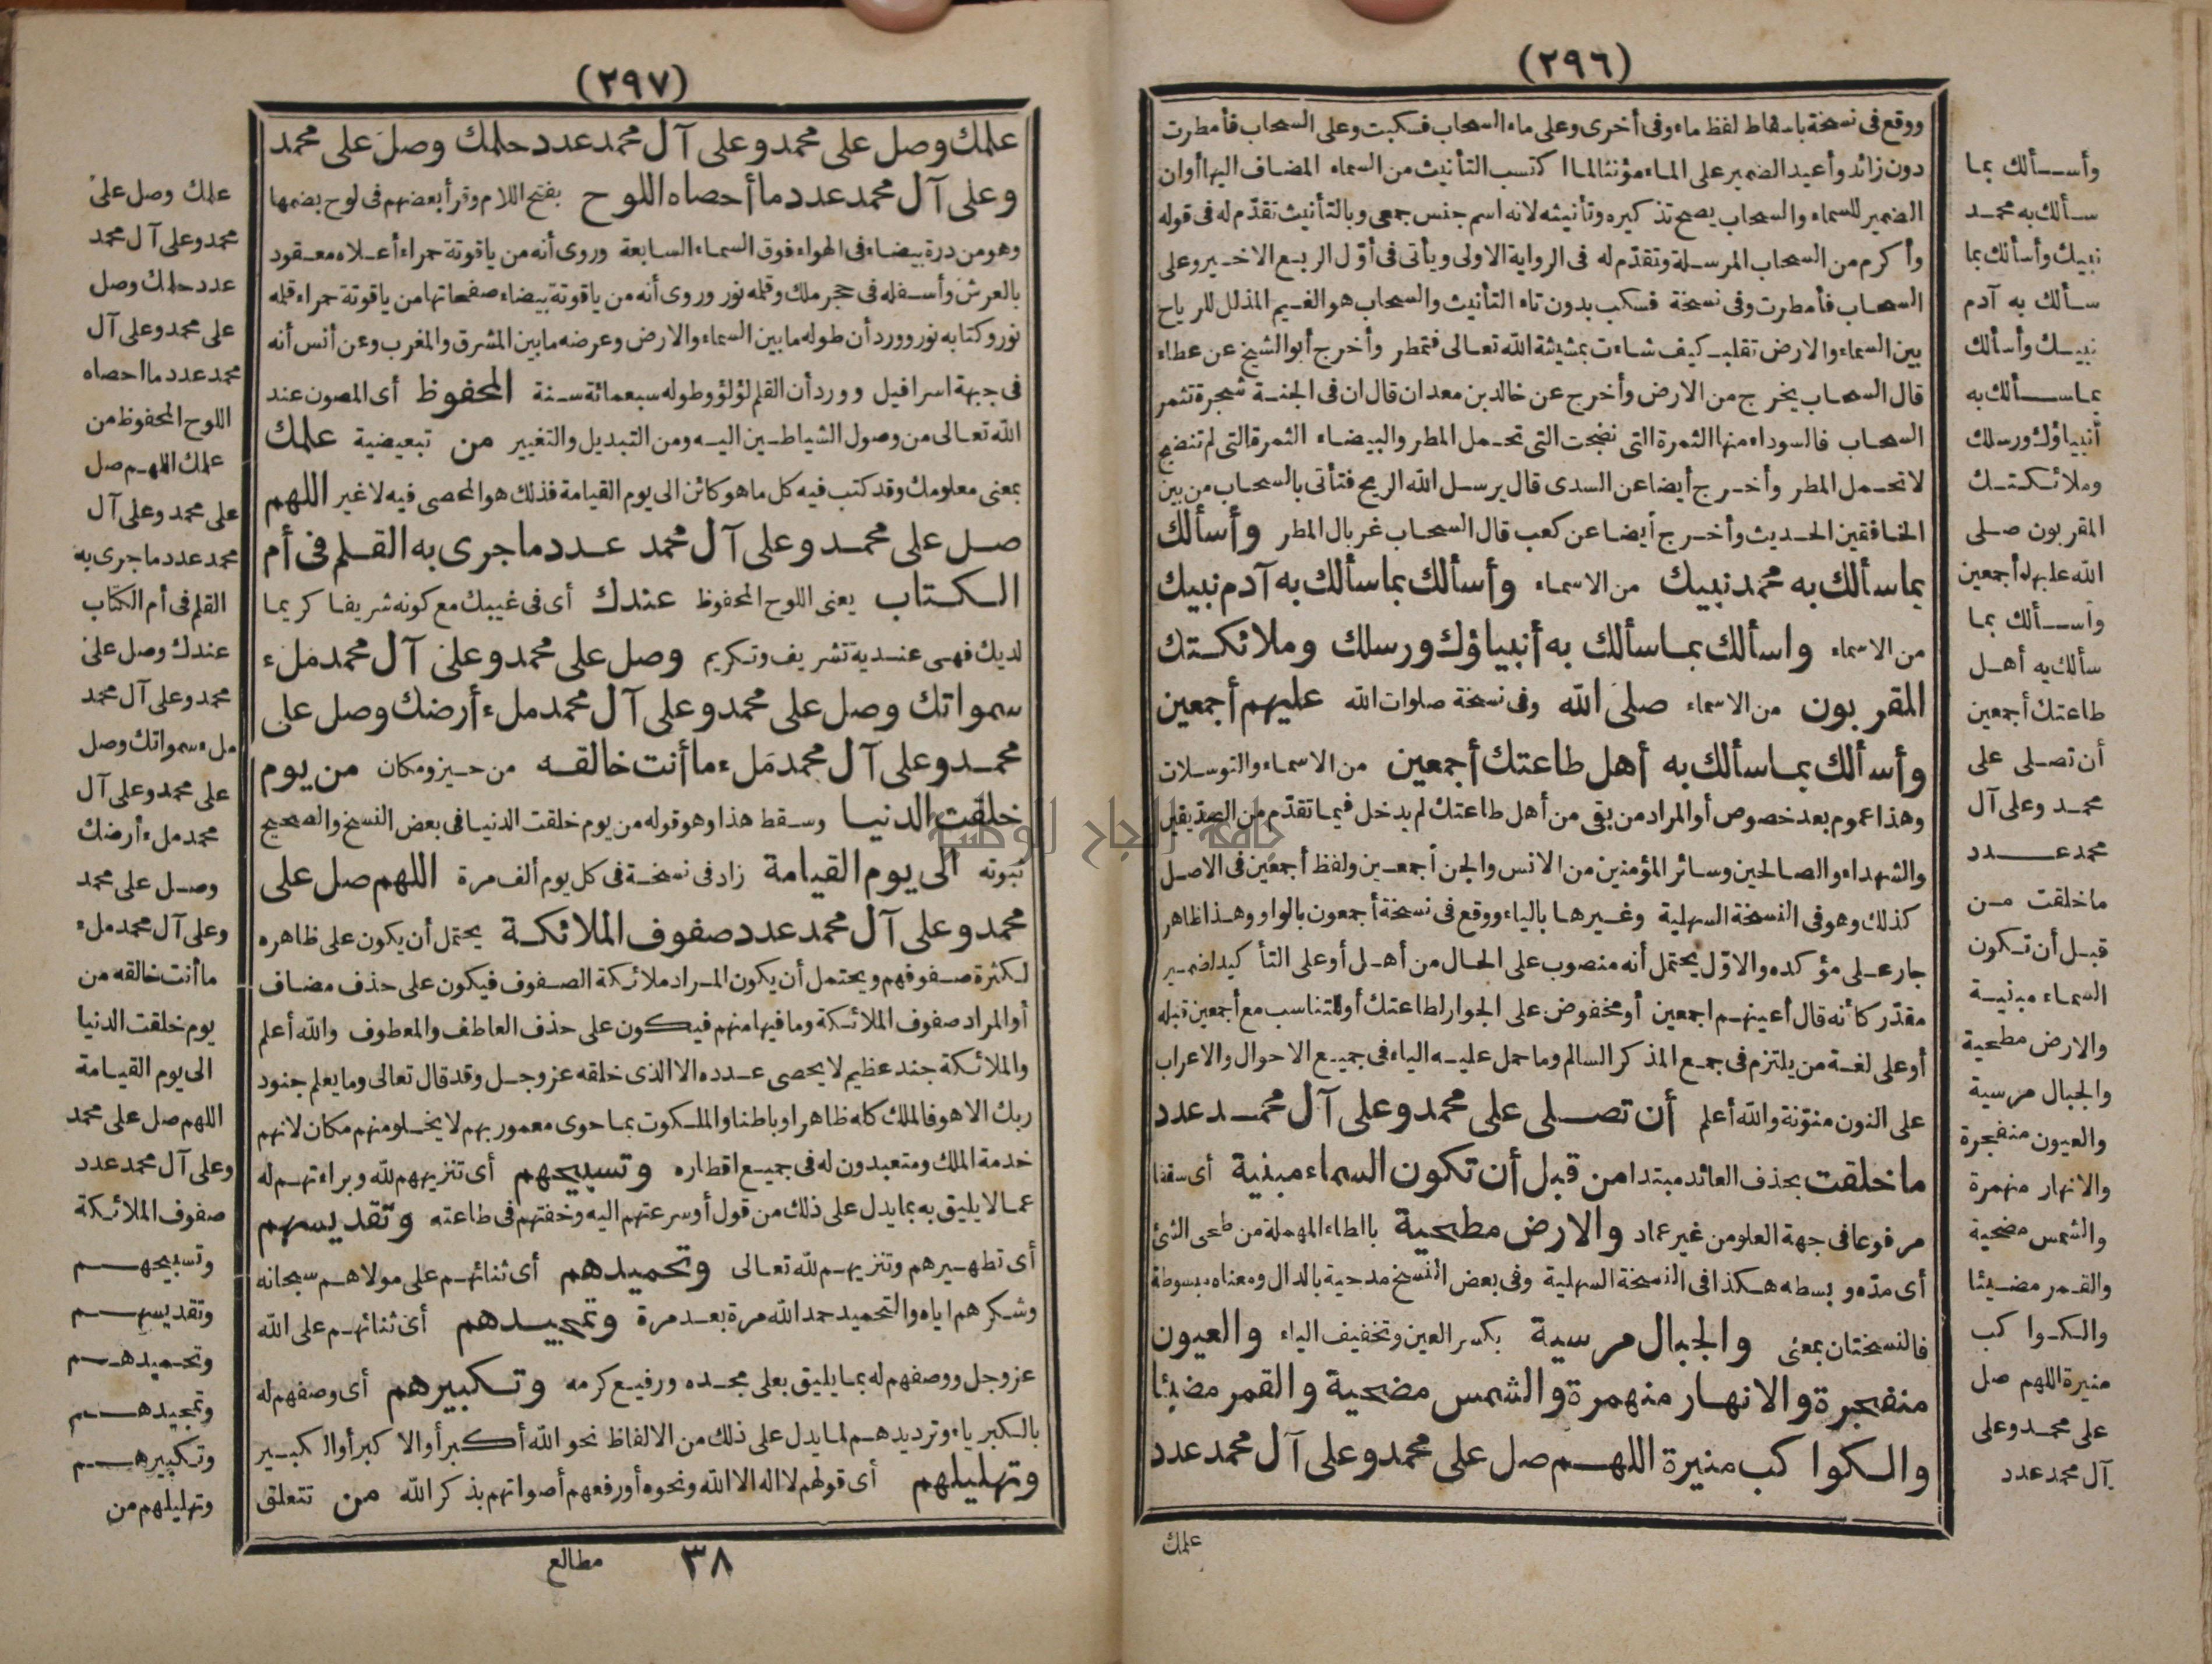 (٢٩٦)
ووقع فى نسخة باسقاط لفظ ماء وفى أخرى وعلى ماء السحاب فسكبت وعلى السحاب فأمطرت
دون زائد وأعيد الضمير على الماء مؤنثا لما اكتسب التأنيث من السماء المضاف اليها أوان
الضمير للسماء والسحاب يصح تذكيره وتأنيثه لانه اسم جنس جمعى وبالتأنيث تقدّم له فى قوله
وأكرم من السحاب المرسلة وتقدّم له فى الرواية الاولى ويأتى فى أوّل الربع الاخير وعلى
السحاب فأمطرت وفى نسخة فسكب بدون تاء التأنيث والسحاب هو الغيم المذلل للرياح
بين السماء والارض تقلبه كيف شاءت بمشيئة الله تعالى فتمطر وأخرج أبو الشيخ عن عطاء
قال السحاب يخرج من الارض وأخرج عن خالد بن معدان قال ان فى الجنة شجرة تثمر
السحاب فالسوداء منها الثمرة التى نضجت التى تحمل المطر والبيضاء الثمرة التى لم تنضج
لا تحمل المطر وأخرج أيضا عن السدى قال يرسل الله الريح فتأتى بالسحاب من بين
الخافقين الحديث وأخرج أيضا عن كعب قال السحاب غربال المطر وأسألك
بما سألك به محمد نبيك من الاسماء وأسألك بما سألك به آدم نبيك
من الاسماء واسألك بما سألك به أنبياؤك ورسلك وملائكتك
المقربون من الاسماء صلى الله وفى نسخة صلوات الله عليهم أجمعين
وأسألك بما سألك به أهل طاعتك أجمعين من الاسماء والتوسلات
وهذا عموم بعد خصوص أو المراد من بقى من أهل طاعتك لم يدخل فيما تقدّم من الصدّيقين
والشهداء والصالحين وسائر المؤمنين من الانس والجن أجمعين ولفظ أجمعين فى الاصل
كذلك وهو فى النسخة السهلية وغيرها بالياء ووقع فى نسخة أجمعون بالواو وهذا ظاهر
جار على مؤكده والاوّل يحتمل أنه منصوب على الحال من أهل أو على التأكيد لضمير
مقدّر كأنه قال أعينهم اجمعين أو مخفوض على الجوار لطاعتك أو للتناسب مع أجمعين قبله
أو على لغة من يلتزم فى جمع المذكر السالم وما حمل عليه الياء فى جميع الاحوال والاعراب
على النون منوّنة والله أعلم أن تصلى على محمد وعلى آل محمد عدد
ما خلقت بحذف العائد مبتدا من قبل أن تكون السماء مبنية أى سقفا
مرفوعا فى جهة العلو من غير عماد والارض مطحية بالطاء المهملة من طحى الشئ
أى مدّه وبسطه هكذا فى النسخة السهلية وفى بعض النسخ مدحية بالدال ومعناه مبسوطة
فالنسختان بمعنى والجبال مرسية بكسر العين وتخفيف الياء والعيون
منفجرة والانهار منهمرة والشمس مضحية والقمر مضيئا
والكواكب منيرة اللهم صل على محمد وعلى آل محمد عدد
علمك
وأسألك بما
سألك به محمد
نبيك وأسألك بما
سألك به آدم
نبيك وأسألك
بما سألك به
أنبياؤك ورسلك
وملائكتك
المقربون صلى
الله عليهم أجمعين
وأسألك بما
سألك به أهل
طاعتك أجمعين
أن تصلى على
محمد وعلى آل
محمد عدد
ما خلقت من
قبل أن تكون
السماء مبنية
والارض مطحية
والجبال مرسية
والعيون منفجرة
والانهار منهمرة
والشمس مضحية
والقمر مضيئا
والكواكب
منيرة اللهم صل
على محمد وعلى
آل محمد عدد
(٢٩٧)
علمك وصل على محمد وعلى آل محمد عدد حلمك وصل على محمد
وعلى آل محمد عدد ما أحصاه اللوح بفتح اللام وقرأ بعضهم فى لوح بضمها
وهو من درة بيضاء فى الهواء فوق السماء السابعة وروى أنه من ياقوتة حمراء أعلاه معقود
بالعرش وأسفله فى حجر ملك وقلمه نور وروى أنه من ياقوتة بيضاء صفحاتها من ياقوتة حمراء قلمه
نور وكتابه نور وورد أن طوله ما بين السماء والارض وعرضه ما بين المشرق والمغرب وعن أنس أنه
فى جبهة اسرافيل وورد أن القلم لؤلؤ وطوله سبعمائة سنة المحفوظ أى المصون عند
الله تعالى من وصول الشياطين اليه ومن التبديل والتغيير من تبعيضية علمك
بمعنى معلومك وقد كتب فيه كل ما هو كائن الى يوم القيامة فذلك هو المحصى فيه لا غير اللهم
صل على محمد وعلى آل محمد عدد ما جرى به القلم فى أم
الكتاب يعنى اللوح المحفوظ عندك أى فى غيبك مع كونه شريفا كريما
لديك فهى عندية تشريف وتكريم وصل على محمد وعلى آل محمد ملء
سمواتك وصل على محمد وعلى آل محمد ملء أرضك وصل على
محمد وعلى آل محمد ملء ما أنت خالقه من حيز ومكان من يوم
خلقت الدنيا وسقط هذا وهو قوله من يوم خلقت الدنيا فى بعض النسخ والصحيح
ثبوته الى يوم القيامة زاد فى نسخة فى كل يوم ألف مرة اللهم صل على
محمد وعلى آل محمد عدد صفوف الملائكة يحتمل أن يكون على ظاهره
لكثرة صفوفهم ويحتمل أن يكون المراد ملائكة الصفوف فيكون على حذف مضاف
أو المراد صفوف الملائكة وما فيها منهم فيكون على حذف العاطف والمعطوف والله أعلم
والملائكة جند عظيم لا يحصى عدده الا الذى خلقه عز وجل وقد قال تعالى وما يعلم جنود
ربك الا هو فالملك كله ظاهرا وباطنا والملكوت بما حوى معمور بهم لا يخلو منهم مكان لانهم
خدمة الملك ومتعبدون له فى جميع اقطاره وتسبيحهم أى تنزيههم لله وبراءتهم له
عما لا يليق به بما يدل على ذلك من قول أو سرعتهم اليه وخفتهم فى طاعته وتقديسهم
أى تطهيرهم وتنزيههم لله تعالى وتحميدهم أى ثنائهم على مولاهم سبحانه
وشكرهم اياه والتحميد حمد الله مرة بعد مرة وتمجيدهم أى ثنائهم على الله
عز وجل ووصفهم له بما يليق بعلى مجده ورفيع كرمه وتكبيرهم أى وصفهم له
بالكبرياء وترديدهم لما يدل على ذلك من الالفاظ نحو الله أكبر أو الاكبر أو الكبير
وتهليلهم أى قولهم لا اله الا الله ونحوه أو رفعهم أصواتهم بذكر الله من تتعلق
٣٨ مطالع
علمك وصل على
محمد وعلى آل محمد
عدد حلمك وصل
على محمد وعلى آل
محمد عدد ما احصاه
اللوح المحفوظ من
علمك اللهم صل
على محمد وعلى آل
محمد عدد ما جرى به
القلم فى أم الكتاب
عندك وصل على
محمد وعلى آل محمد
ملء سمواتك وصل
على محمد وعلى آل
محمد ملء أرضك
وصل على محمد
وعلى آل محمد ملء
ما أنت خالقه من
يوم خلقت الدنيا
الى يوم القيامة
اللهم صل على محمد
وعلى آل محمد عدد
صفوف الملائكة
وتسبيحهم
وتقديسهم
وتحميدهم
وتمجيدهم
وتكبيرهم
وتهليلهم من
جامعة النجاح الوطنية